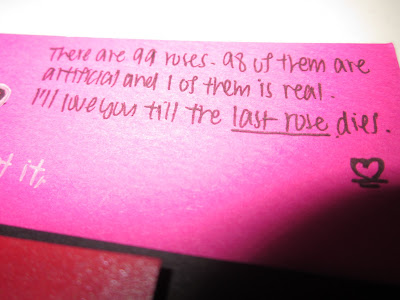 There are 99 roses. 98 of them are
artificial and 1 of them is real.
I'll love you till the last rose dies.
t it,